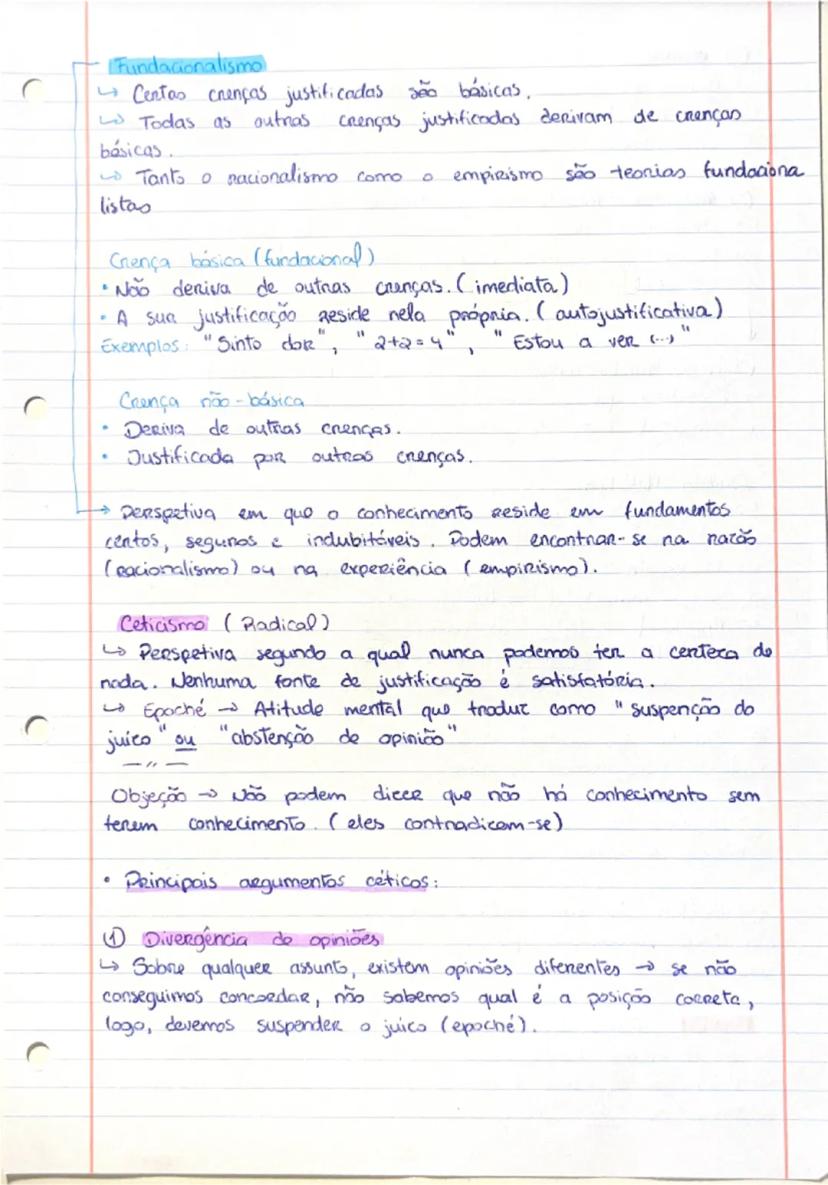 Fundacionalismo
↳ Certas crenças justificadas são básicas.
↳ Todas as outras crenças justificadas derivam de crenças
básicas.
↳ Tanto o racionalismo como o empirismo são teorias fundaciona
listas
Crença básica (fundacional)
• Não deriva de outras crenças. (imediata)
• A sua justificação reside nela própria. (autojustificativa)
Exemplos: "Sinto dor", "2+2=4", "Estou a ver (...)"
Crença não-básica
• Deriva de outras crenças.
• Justificada por outras crenças.
→ Perspetiva em que o conhecimento reside em fundamentos
certos, seguros e indubitáveis. Podem encontrar-se na razão
(racionalismo) ou na experiência (empirismo).
Ceticismo (Radical)
↳ Perspetiva segundo a qual nunca podemos ter a certeza de
nada. Nenhuma fonte de justificação é satisfatória.
↳ Epoché → Atitude mental que traduz como "suspenção do
juízo" ou "abstenção de opinião"
— " —
Objeção → Não podem dizer que não há conhecimento sem
terem conhecimento. (eles contradizem-se)
• Principais argumentos céticos:
① Divergência de opiniões
↳ Sobre qualquer assunto, existem opiniões diferentes → se não
conseguimos concordar, não sabemos qual é a posição correta,
logo, devemos suspender o juízo (epoché).